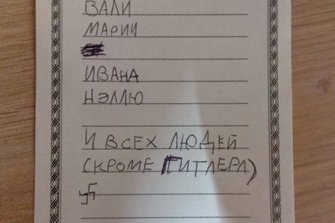 ВАЛИ
МАРИИ
ИВАНА
НЭЛЛЮ
И ВСЕХ ЛЮДЕЙ
(КРОМЕ ГИТЛЕРА)
卐